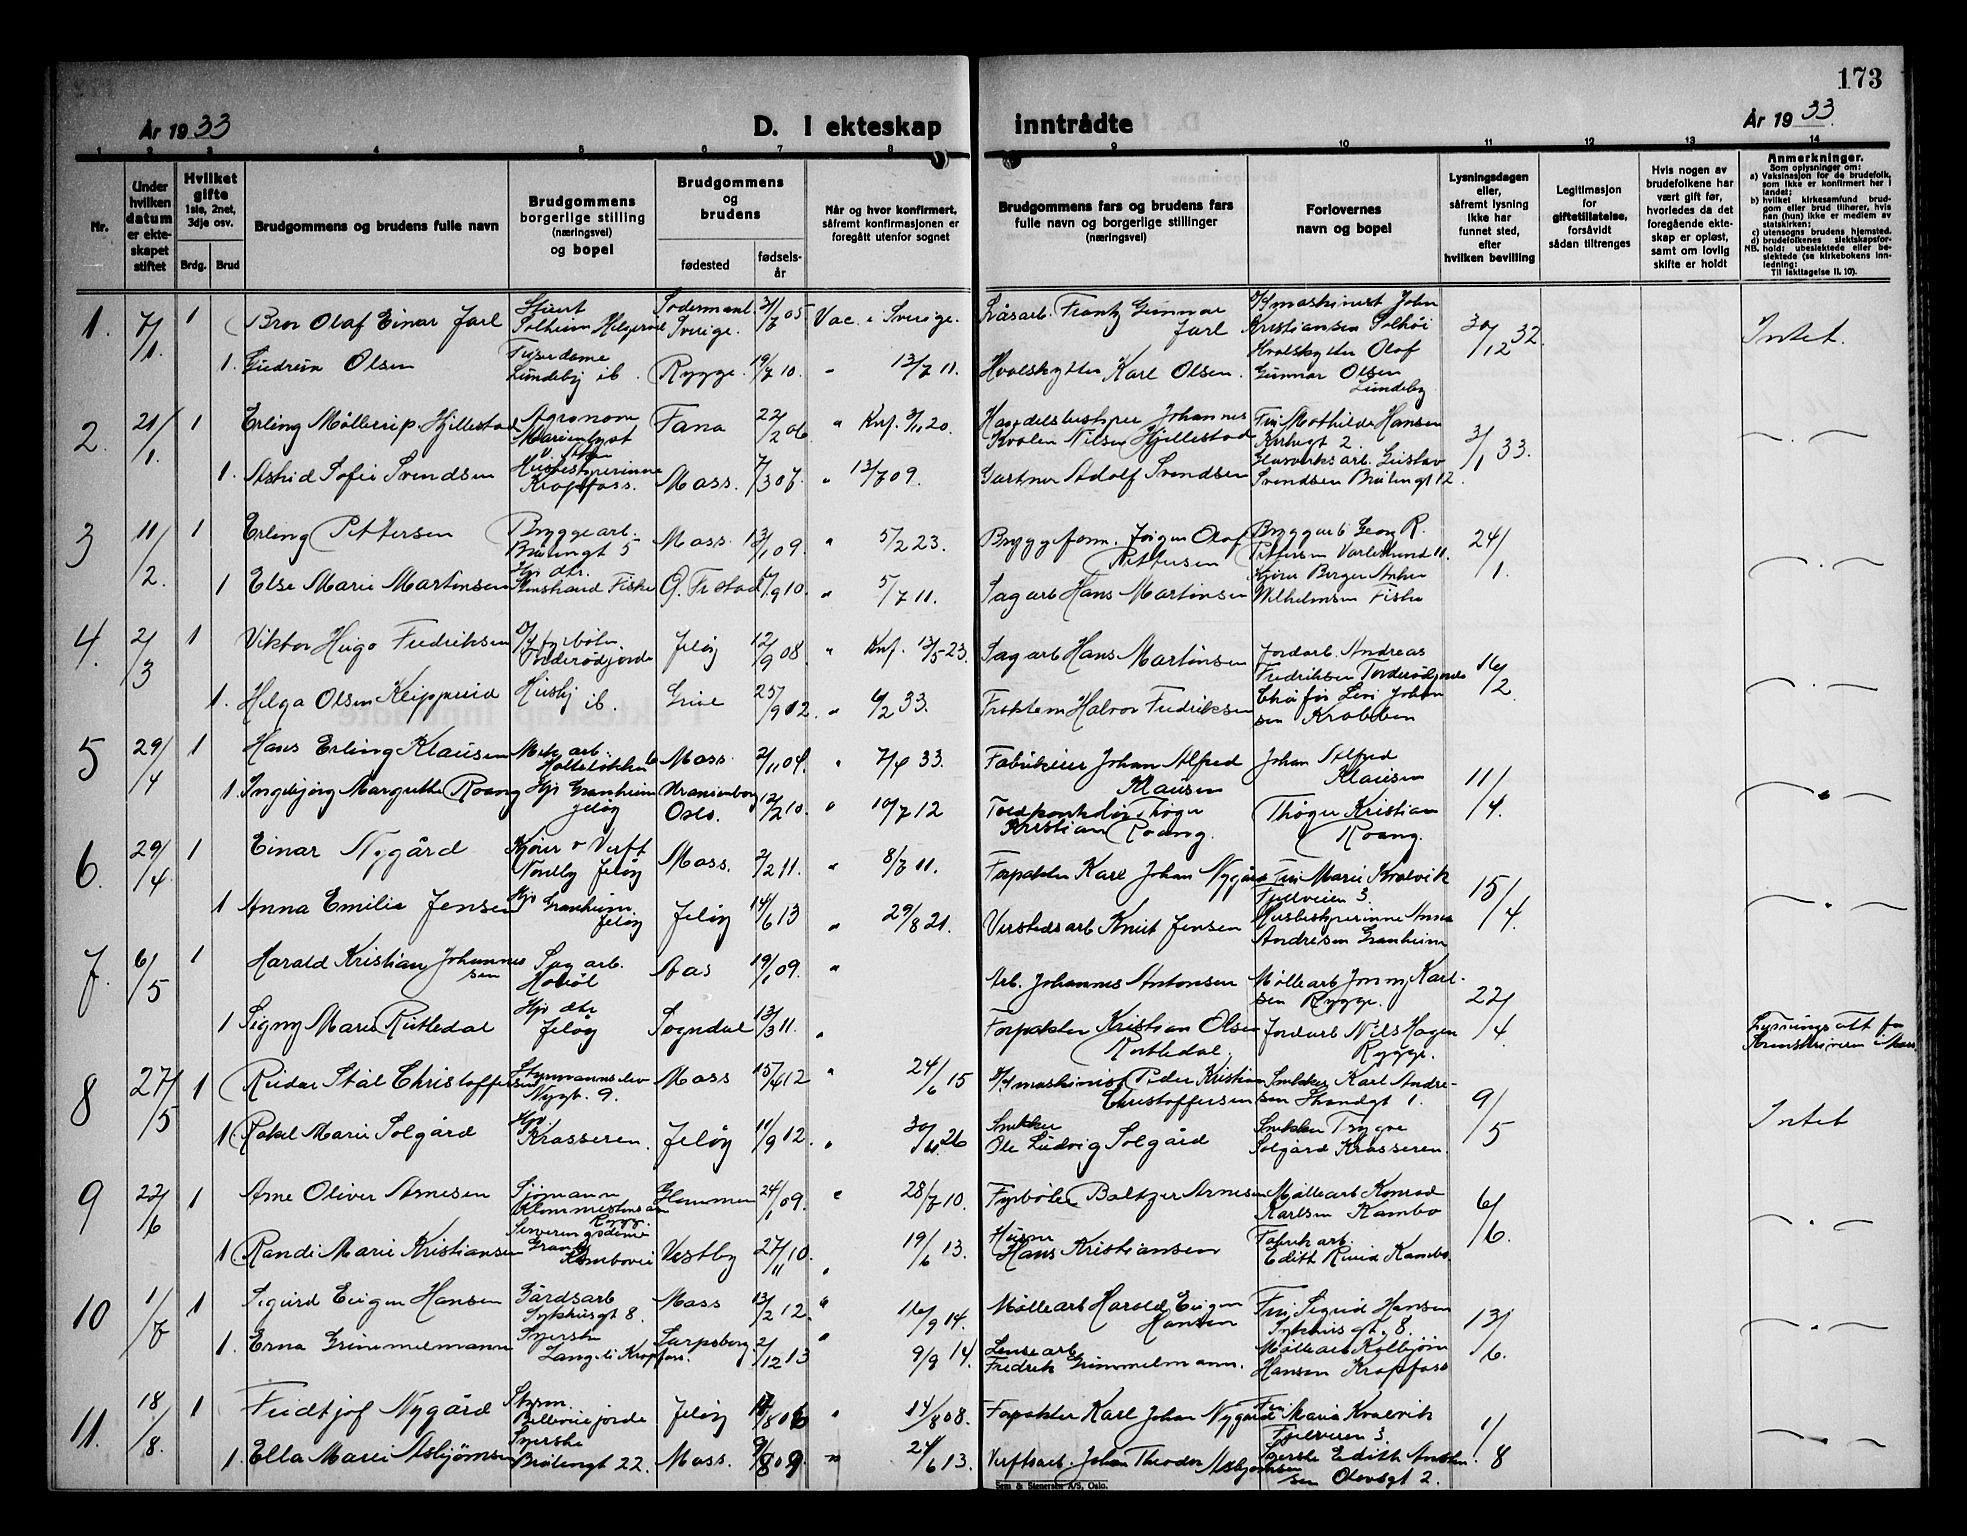 173
År 1933
D. I ekteskap
inntrådte
År 1933.
1 2 3 4 5 6 7 8 9 10 11 12 13 14
Nr.
Under hvilken datum er ekteskapet stiftet
Hvilket gifte 1ste, 2net, 3dje osv.
Brdg. Brud
Brudgommens og brudens fulle navn
Brudgommens borgerlige stilling (næringsvei) og bopel
Brudgommens og brudens
fødested
fødselsår
Når og hvor konfirmert, såfremt konfirmasjonen er foregått utenfor sognet
Brudgommens fars og brudens fars fulle navn og borgerlige stillinger (næringsvei)
Forlovernes navn og bopel
Lysningsdagen eller, såfremt lysning ikke har funnet sted, efter hvilken bevilling
Legitimasjon for giftetillatelse, forsåvidt sådan tiltrenges
Hvis nogen av brudefolkene har vært gift før, hvorledes da det foregående ekteskap er opløst, samt om lovlig skifte er holdt
Anmerkninger.
Som oplysninger om:
a) Vaksinasjon for de brudefolk, som ikke er konfirmert her i landet;
b) hvilket kirkesamfund brudgom eller brud tilhører, hvis han (hun) ikke er medlem av statskirken;
c) utensogns brudens hjemsted.
d) brudefolkenes slektskapsforhold: ubeslektede eller beslektede (se kirkebokens innledning:
NB. Til iakttagelse II. 10).
1. 7/1. 1 Bror Olaf Einar Jarl Solheim Sverige. 05 Vac. i Sverige. Frantz Gunnar Jarl maskinist John Kristiansen Solhöi 30/12 32. Intet.
1. Gudrun Olsen Lundeby ib. Rygge. 19/7 10. " 13/7 11. Hvalskytter Karl Olsen. Hvalskytter Olaf Gunnar Olsen Lundeby
2. 21/1. 1 Erling Møllerup Hjllestad Agronom Marienlyst Fana 22/2 06 " Knf. 20. Handelsbestyrer Johannes Kvalen Nilsen Hjellestad Frk Mathilde Hansen Kirkegt 2. 3/1 33. — " —
1. Astrid Sofie Svendsen Husbestyrerinne Kropfoss. Moss. 7/3 07. " 13/7 09. Gartner Adolf Svendsen Glasverksarb. Gustav Svendsen Brålingt 12.
3 11/2. 1 Erling Pettersen Bryggearb. Brålingt 5 Moss. 13/1 09. " 5/2 23. Bryggeform. Jörgen Olaf Pettersen Bryggarb Georg R. Pettersen Varlesund 11. 24/1. — " —
1 Else Marie Martinsen Hjv dtr. Fiske G. Fr stad /9 10. " 5/7 11. Sagarb Hans Martinsen Kjörer Birger Anker Wilhelmsen Fiske
4. 2/3 1 Viktor Hugo Fredriksen fyrböter. Torderödjorde Jelöy 12/9 08 " Knf. 13/5 23. Sagarb Hans Martinsen Jordarb Andreas Fredriksen 16/2 — " —
1. Helga Olsen Kleppurid Hushj ib. Grue 25/9 12. " 6/2 33. Halvor Fredriksen Chaufför Levi Johansen Krabben
5 29/4 1 Hans Erling Klausen Mek arb. Moss 2/11 04. " 7/4 33. Fabrikeier Johan Alfred Klausen Johan Alfred Klausen 11/4. — " —
1. Ingebjörg Margrethe Roang Hjv Granheim Jelöy Uranienborg Oslo. 12/2 10. " 10/7 12 Toldkontrolör Thöger Kristian Roang. Thöger Kristian Roang.
6. 29/4. 1 Einar Nygård Kjörer v Verft Nordby Jelöy Moss. 2/2 11. " 8/7 11. Forpakter Karl Johan Nygård Fru Marie Kvalvik Fjellveien 3. 15/4. — " —
1 Anna Emilie Jensen Hjv Granheim Jelöy Jelöy 14/6 13 " 29/8 21. Verstedsarb Knut Jensen Husbestyrerinne Anna Andresen Granheim
7. 6/5 1 Harald Kristian Johannessen Sag arb. Hobøl Aas 19/1 09. " Arb. Johannes Antonsen Möllearb Jonny Karlsen Rygge. 22/4 Lysningsatt fra Sorenskriveren i Moss
1 Signy Marie Rutledal Hjv dtr Jelöy Sogndal 13/3 11. " Forpakter Kristian Olsen Rutledal. Jordarb Nils Hagen Rygge.
8 27/5 1 Reidar Stål Christoffersen Styrmannselev Nygt. 9. Moss 15/4 12 " 24/6 15 maskinist Peder Kristian Christoffersen Snekker Karl Andresen Strandgt 1. 9/5 Intet
1 Rakel Marie Solgård Hjv Krosseren. Jelöy 11/9 12. " 26 Snekker Ole Ludvig Solgård Snekker Trygve Solgård Krosseren.
9 22/6 1 Arne Oliver Arnesen Sjömann Rygg. Glemmen 24/1 09. " 28/7 10. Fyrböter Baltzer Arnesen Möllearb Konrad Karlsen Kambo 6/6. — " —
1 Randi Marie Kristiansen Serveringsdame Grand Kamboveien Vestby 27/11 10. " 19/6 13. Husm. Hans Kristiansen Fabrikarb. Edith Ruud Kambo.
10 1/7 1 Sigurd Eugen Hansen Gårdsarb Sykhusgt 8. Moss 13/2 12. " 16/9 14. Möllearb Harald Eugen Hansen Fru Sigrid Hansen Sykhusgt. 8. 13/6. — " —
1. Erna Grimmelmann Syerske Langeli Kropfoss. Sarpsborg. 2/12 13 " 9/8 14. Lensearb Fredrik Grimmelmann. Möllearb Kolbjörn Hansen Kropfoss
11. 18/8. 1 Fridtjof Nygård Styrm. Bellevuejorde Jelöy /8 06 " 14/8 08. Forpakter Karl Johan Nygård Fru Maria Kvalvik Fjellveien 3. 1/8 — " —
1. Ella Marie Asbjörnsen Syerske Brålengt 22. Moss. 9/8 09 " 24/6 13. Verftsarb. Johan Theodor Asbjörnsen Syerske Edith Arntsen Olavsgt 2.
Sem & Stenersen A/S, Oslo.